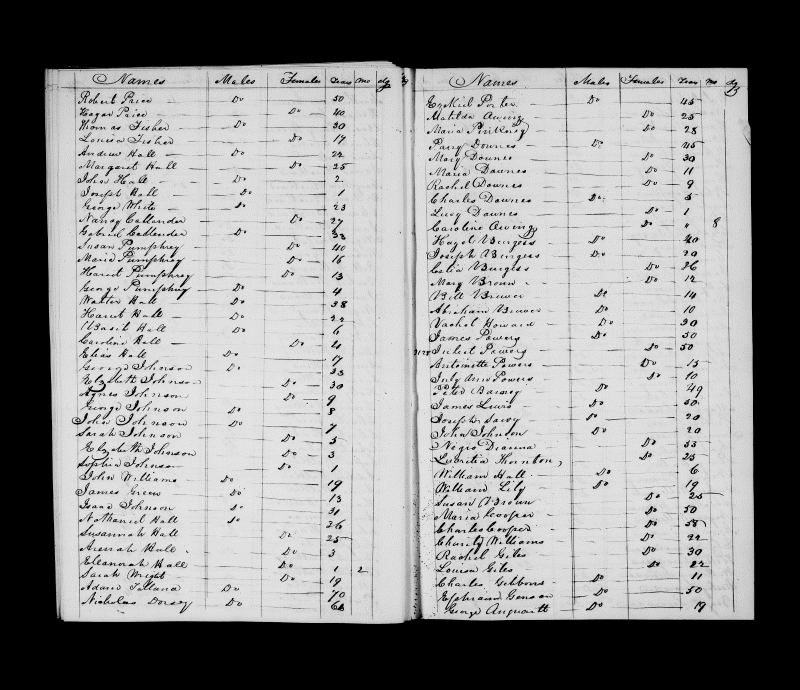 Names Males Females Years Mo dys
Robert Price Do 50
Hagar Price Do 40
Thomas Fisher Do 30
Louisa Fisher Do 17
Andrew Hall Do 22
Margaret Hall Do 25
John Hall Do 2
Joseph Hall Do 1
George White Do 23
Nancy Callender Do 27
Gabriel Callender Do 32
Susan Pumphrey Do 40
Maria Pumphrey Do 16
Harriet Pumphrey Do 13
George Pumphrey Do 4
Walter Hall Do 38
Hall Do 22
Hall Do 6
Caroline Hall Do 4
Elias Hall Do 17
George Johnson Do 35
Elizabeth Johnson Do 30
Agnes Johnson Do 9
George Johnson Do 8
John Johnson Do 7
Sarah Johnson Do 5
Elizabeth Johnson Do 3
Sophia Johnson Do 1
John Williams Do 19
James Green Do 13
Isaac Johnson Do 31
Nathaniel Hall Do 26
Susannah Hall Do 25
Hall Do 3
Elleanorah Hall Do 1 2
Sarah Wright Do 19
Adam Do 70
Nicholas Dorsey Do
Names Males Females Years Mo dys
Ezekiel Porter Do 45
Matilda Do 25
Maria Pinkney Do 28
Parry Downes Do 45
Mary Downes Do 30
Maria Downes Do 11
Rachel Downes Do 9
Charles Downes Do 5
Lucy Downes Do 1
Caroline Do " 8
Burgess Do 40
Joseph Burgess Do 20
Celia Burgess Do 26
Mary Brown Do 12
Bill Brewer Do 14
Abraham Brewer Do 10
Vachel Howard Do 30
James Powers Do 50
Juliet Powers Do 50
Antoinette Powers Do 15
July Ann Powers Do 10
Peter Barney Do 49
James Lewis Do 50
Joseph Savoy Do 20
John Johnson Do 20
Negro Dianna Do 53
Lucretia Thornton Do 25
William Hall Do 6
William Lily Do 19
Susan Brown Do 25
Maria Cooper Do 50
Charles Cooper Do 58
Charity Williams Do 22
Rachel Giles Do 30
Louisa Giles Do 22
Charles Gibbons Do 11
Ephraim Do 50
George Do 17